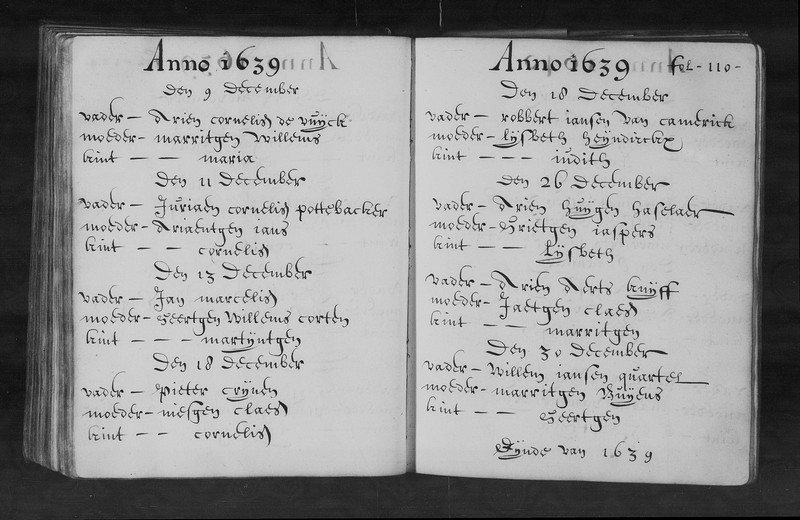 Anno 1639
Den 9 December
vader - Arien cornelis de vuÿck
moeder - marritgen Willems
kint - - maria
Den 11 December
vader - Juriaen cornelis pottebacker
moeder - Ariaentgen jans
kint - - cornelis
Den 13 December
vader - Jan marcelis
moeder - Geertgen Willems corten
kint - - - martÿntgen
Den 18 December
vader - Pieter crÿnen
moeder - niesgen claes
kint - - cornelis
Anno 1639 fol - 110 -
Den 18 December
vader - robbert jansen van camerick
moeder - lÿsbeth heÿndirckx
kint - - - judith
Den 26 December
vader - Arien huÿgen haselaer
moeder - Grietgen jaspers
kint - - Lÿsbeth
vader - Arien Aerts kruÿff
moeder - Jaetgen claes
kint - - marritgen
Den 30 December
vader - Willem jansen quartel
moeder - marritgen Buÿens
kint - - Geertgen
Eÿnde van 1639